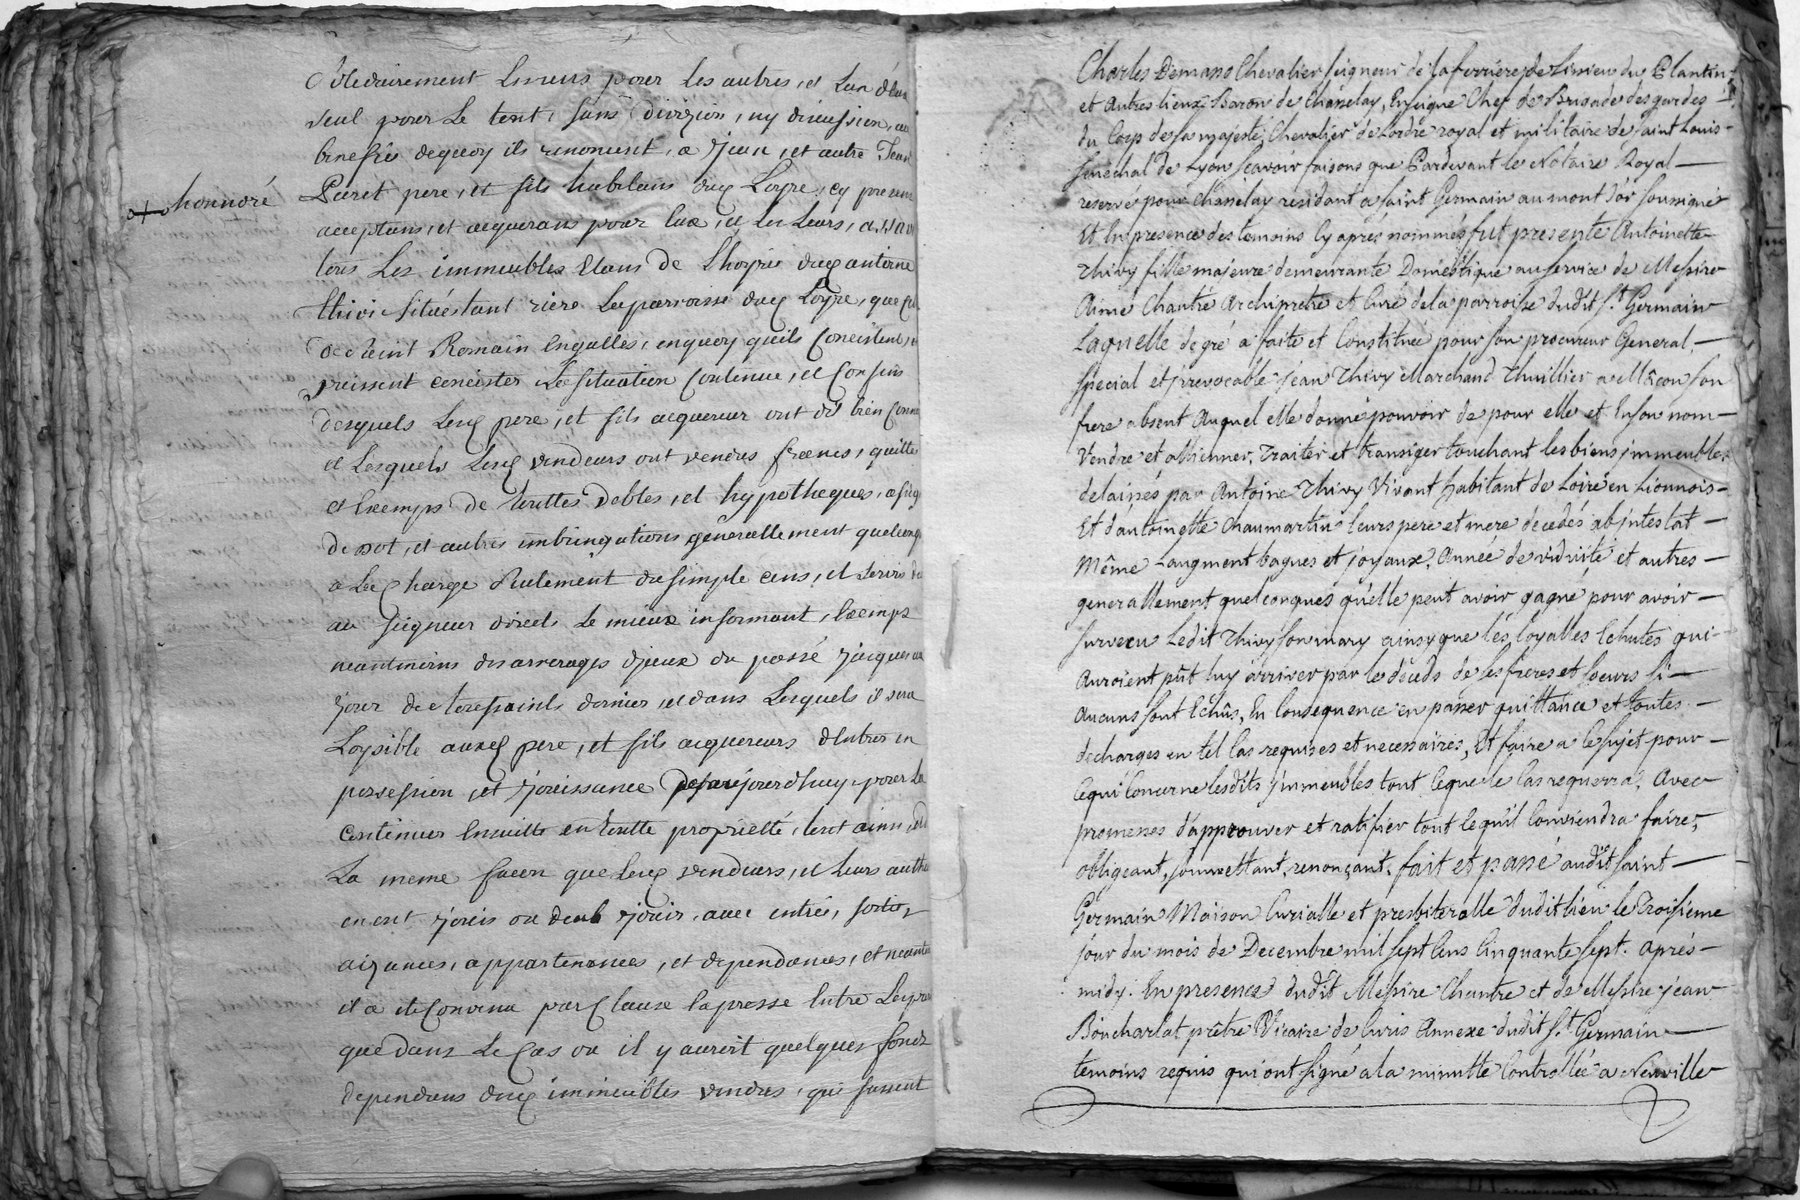 solidairement les uns pour les autres, et l'un d'eux
seul pour le tout, sans division, ny discussion, au
benefice dequoy ils renoncent, a sieur, et autre Jean
honnoré
Paret pere, et fils habitans dud Loyre, cy presens
acceptans, et acquerans pour eux, et les leurs, assavoir
tous les immeubles etans de l'hoyrie dud antoine
thivi situés tant riere la parroisse dud Loyre, que
de saint Romain en galles, en quoy qu'ils consistent, et
puissent consister la situation contenue, et confins
desquels lesd pere, et fils acquereur ont dit bien
et lesquels lesd vendeurs ont vendus francs, quittes
et exemps de touttes debtes, et hypotheques,
de dot, et autres imbringations generallement quelconq
a la charge seulement du simple cens, et servis
au seigneur direct le mieux informant, exemps
neantmoins des arrerages d'iceux du passé jusques au
jour de toussaints dernier, et dans lesquels il sera
loysible auxd pere, et fils acquereurs d'entrer en
possession, et jouissance des aujourdhuy, pour la
continuer ensuitte en toutte proprietté, tout ainsi, et de
la meme facon que lesd vendeurs, et leurs autheurs
en ont jouis ou deub jouir, avec entrés, sortis,
aizances, appartenances, et dependances, et neantmoins
il a eté convenu par clause expresse entre les parties
que dans le cas ou il y auroit quelques fonds
dependans dud immeubles vendus, qui fussent
Charles Demano Chevalier seigneur de la ferriere de Lissieu du Plantin
et Autres lieux Baron de Chasselay, Enseigne Chef de Brigade des gardes
du Corps de sa majesté, Chevalier de Lordre royal et militaire de saint Louis
senechal de Lyon scavoir faisons que Pardevant le Notaire Royal
reservé pour Chasselay residant a saint Germain au mont d'or soussigné
Et En presence des temoins Cy après nommés fut presente Antoinette
Thivy fille majeure demeurante Domestique au service de Messire
Aimé Chantre Archipretre et Curé de la parroisse dudit S.t Germain
Laquelle de gré a faite et Constitué pour son procureur General,
special et jrrevocable jean Thivy Marchand Thuillier a Mâcon son
frere absent Auquel elle donne pouvoir de pour elle et En son nom
Vendre et allienner, Traiter et transiger touchant les biens jmmeubles
delaisses par Antoine Thivy Vivant habitant de Loire en Lionnois
Et d'antoinette Chaumartin leurs pere et mere decedés abjntestat
Même Laugment bagues et joyaux, Année de viduité et autres
generallement quelconques qu'elle peut avoir gagné pour avoir
survecu Ledit Thivy son mary ainsy que les loyalles Echutes qui
Auroient pût luy arriver par le decéds de ses freres et soeurs si
Aucuns sont Echûs, En Consequence en passer quittance et toutes
decharges en tel Cas requises et necessaires, Et faire a ce sujet pour
Cequi Concerne lesdits jmmeubles tout ceque le Cas requerra, Avec
promesses d'approuver et ratifier tout cequ'il Conviendra faire,
obligeant, soumettant, renonçant. fait et passé audit saint
Germain Maison Curialle et presbiteralle dudit lieu le Troisieme
jour du mois de Decembre mil sept Cens Cinquante sept. Aprés
midy. En presence dudit Messire Chantre et de Messire jean
Boucharlat prêtre Vicaire de Curis Annexe dudit S.t Germain
temoins requis qui ont signé a la minutte Controllée a Neuville